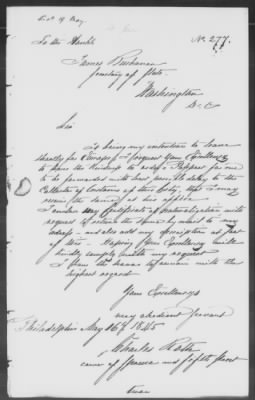 No. 277.
To the Honble
James Buchanan
Secretary of State
Washington
D. C.
Sir
It being my intention to leave
shortly for Europe, I request Your Excellency
to have the kindness to send a Passport for me
to be forwarded with least possible delay to the
Collector of Customs of this City, that I may
receive the same at his office
I enclose my Certificate of naturalization with
request of return the same by mail to my
and also add my description at foot
of this - Hoping Your Excellency will
kindly comply with my request
I have the honor to remain with the
highest regard
Your Excellencys
very obedient servant
Philadelphia May 16th 1845
Charles Roth
corner of Spruce and fifth Street